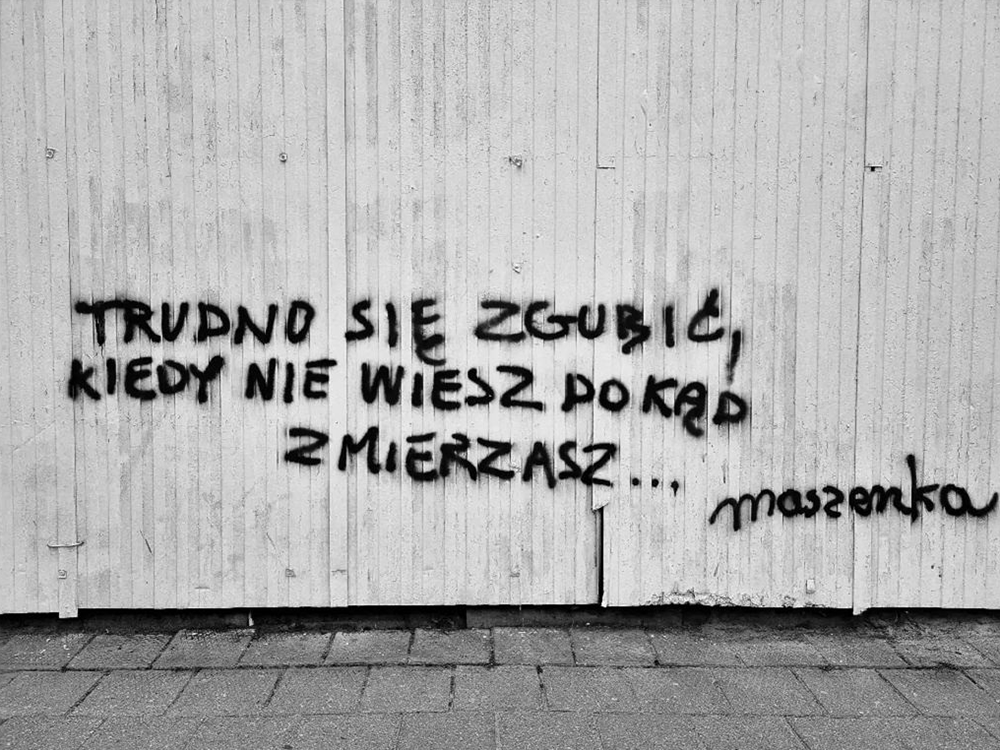 TRUDNO SIĘ ZGUBIĆ,
KIEDY NIE WIESZ DOKĄD
ZMIERZASZ...
maszenka